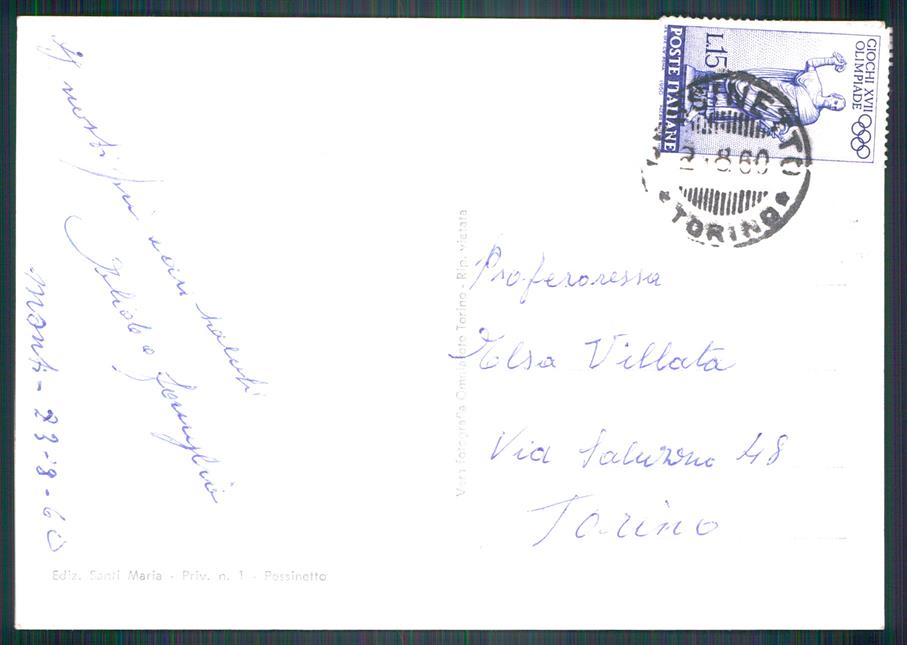 I nostri più cari saluti
famiglia
Monti - 23-8-60
Ediz. Santi Maria - Priv. n. 1 - Pessinetto
Vera Fotografia Torino - Rip. vietata
GIOCHI XVII
OLIMPIADE
L.15
POSTE ITALIANE
1960
8.60
*TORINO*
Professoressa
Elsa Villata
Via Saluzzo 48
Torino